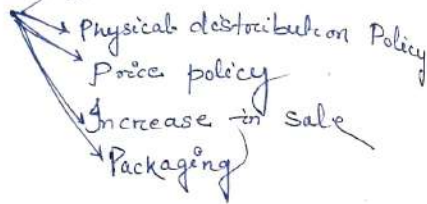 Physical distribution Policy
Price policy
Increase in sale
Packaging